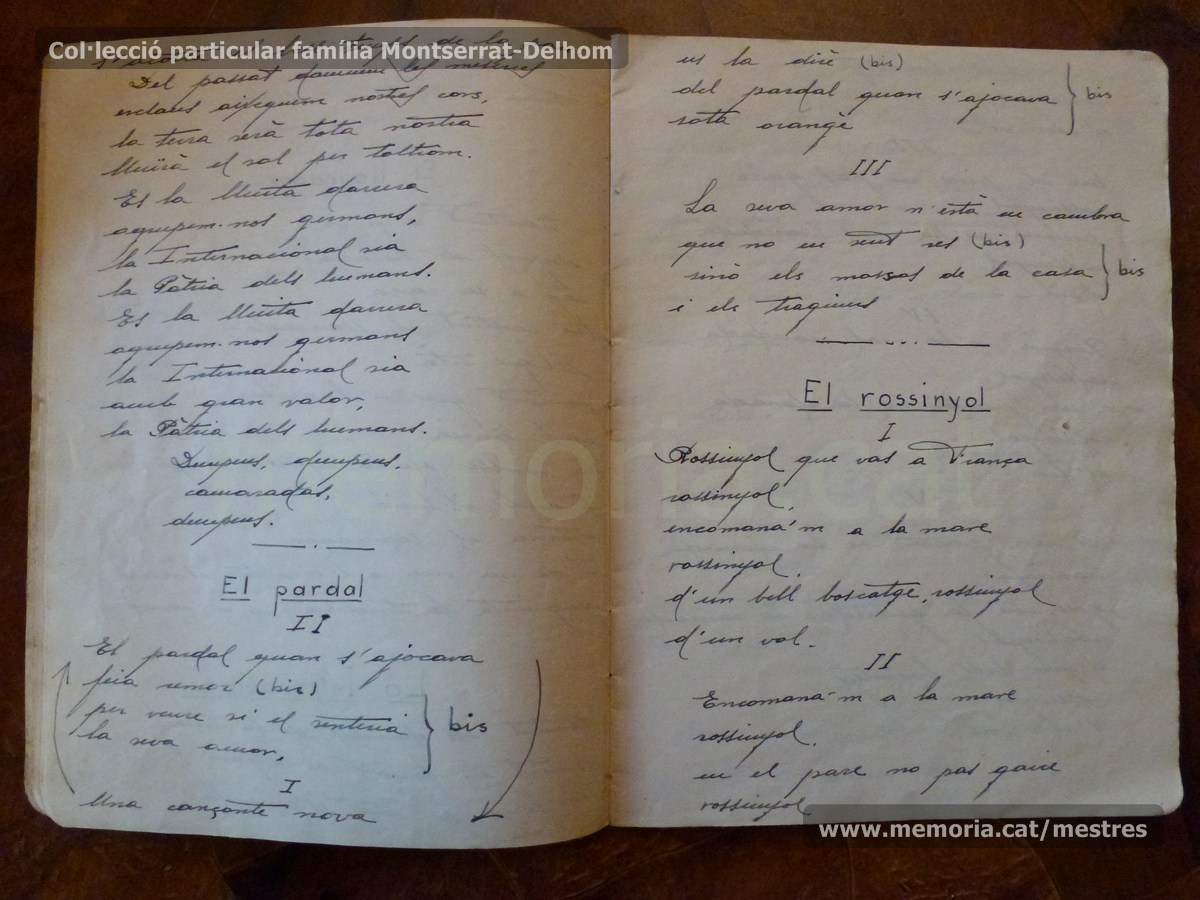 Col·lecció particular família Montserrat-Delhom
Del passat daurem les mestres
esclaus aixequem nostres cors,
la terra serà tota nostra
lluirà el sol per tothom.
Es la lluita darrera
agrupem-nos germans,
la Internacional sia
la Pàtria dels humans.
Es la lluita darrera
agrupem-nos germans
la Internacional sia
amb gran valor,
la Pàtria dels humans.
Dempeus, dempeus,
camarades,
dempeus.
El pardal
II
El pardal quan s'ajocava
feia remor (bis)
per veure si el sentiria
la seva amor,
bis
I
Una cançoneta nova
us la diré (bis)
del pardal quan s'ajocava
sota orangè
bis
III
La seva amor n'està en cambra
que no en sent res (bis)
sinó els mossos de la casa
i els traginers
bis
El rossinyol
I
Rossinyol que vas a França
rossinyol,
encomana'm a la mare
rossinyol.
d'un bell boscatge, rossinyol
d'un vol.
II
Encomana'm a la mare
rossinyol.
en el pare no pas gaire
rossinyol
memoria.cat
www.memoria.cat/mestres